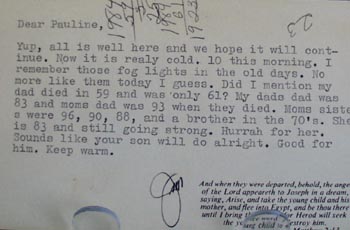 Dear Pauline,
23
Yup, all is well here and we hope it will cont-
inue. Now it is realy cold. 10 this morning. I
remember those fog lights in the old days. No
more like them today I guess. Did I mention my
dad died in 59 and was only 61? My dads dad was
83 and moms dad was 93 when they died. Moms siste
s were 96, 90, 88, and a brother in the 70's. She
is 83 and still going strong. Hurrah for her.
Sounds like your son will do alright. Good for
him. Keep warm.
And when they were departed, behold, the angel
of the Lord appeareth to Joseph in a dream,
saying, Arise, and take the young child and his
mother, and flee into Egypt, and be thou there
until I bring for Herod will seek
the young child to destroy him.